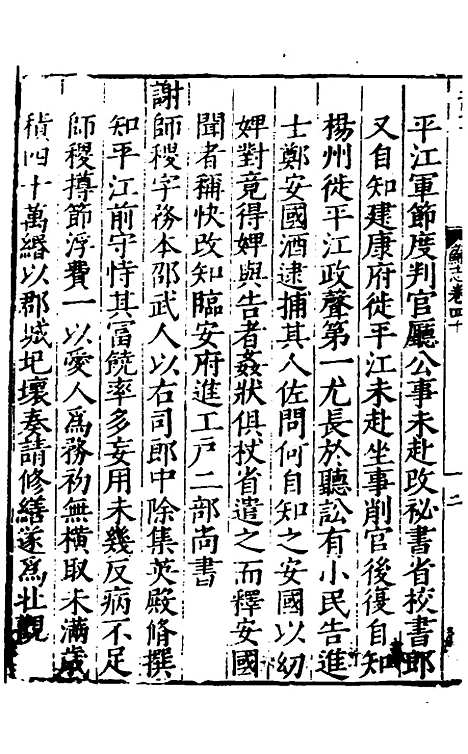 平江軍節度判官廳公事未赴改祕書省校書郎
又自知建康府徙平江未赴坐事削官後復自知
楊州徙平江政聲第一尤長於聽訟有小民告進
士鄭安國酒逮捕其人佐問何自知之安國以幼
婢對竟得婢與告者姦狀俱杖省遣之而釋安國
聞者稱快改知臨安府進工戶二部尚書
謝師稷字務本邵武人以右司郎中除集英殿脩撰
知平江前守恃其富饒率多妄用未幾反病不足
師稷撙節浮費一以愛人爲務初無橫取未滿歲
積四十萬緡以郡城圮壞奏請修繕遂爲壯觀
蘇志卷四十
二